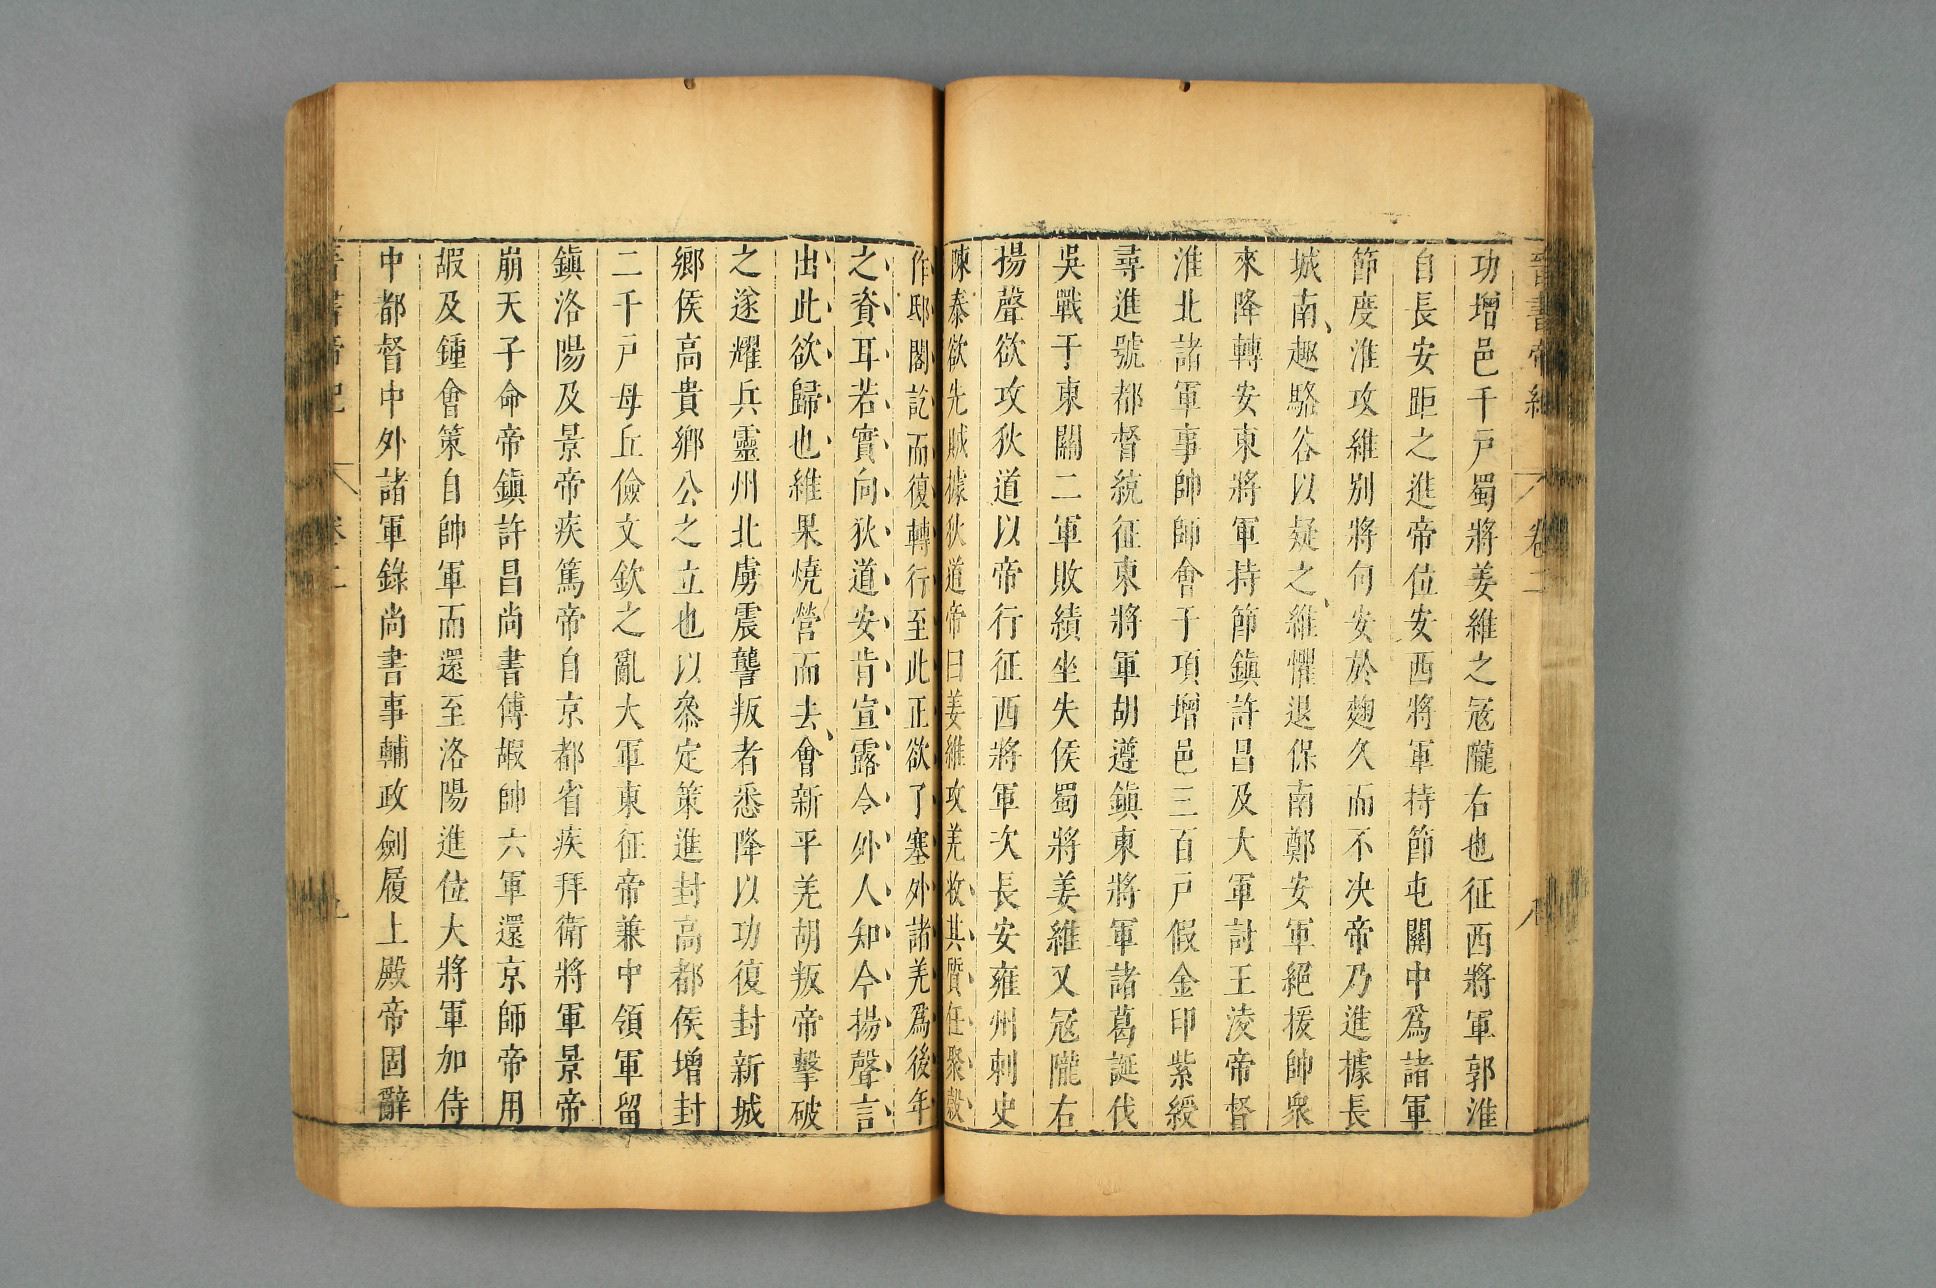 晉書帝紀 卷二 八
功增邑千戸蜀將姜維之冦隴右也征西將軍郭淮
自長安距之進帝位安西將軍持節屯關中爲諸軍
節度淮攻維别將句安於麴久而不决帝乃進據長
城南趣駱谷以疑之維懼退保南鄭安軍絕援帥衆
來降轉安東將軍持節鎭許昌及大軍討王淩帝督
淮北諸軍事帥師會于項增邑三百戸假金印紫綬
尋進號都督統征東將軍胡遵鎭東將軍諸葛誕伐
吳戰于東關二軍敗績坐失侯蜀將姜維又冦隴右
揚聲欲攻狄道以帝行征西將軍次長安雍州刺史
陳泰欲先賊據狄道帝曰姜維攻羌收其質任聚榖
作邸閣訖而復轉行至此正欲了塞外諸羌爲後年
之資耳若實向狄道安肯宣露令外人知今揚聲言
出此欲歸也維果燒營而去會新平羌胡叛帝擊破
之遂耀兵靈州北虜震讋叛者悉降以功復封新城
鄉侯高貴鄉公之立也以叅定策進封高都侯增封
二千戸毋丘儉文欽之亂大軍東征帝兼中領軍留
鎭洛陽及景帝疾篤帝自京都省疾拜衛將軍景帝
崩天子命帝鎭許昌尚書傅嘏帥六軍還京師帝用
嘏及鍾會策自帥軍而還至洛陽進位大將軍加侍
中都督中外諸軍錄尚書事輔政劍履上殿帝固辭
晉書帝紀 卷二 九